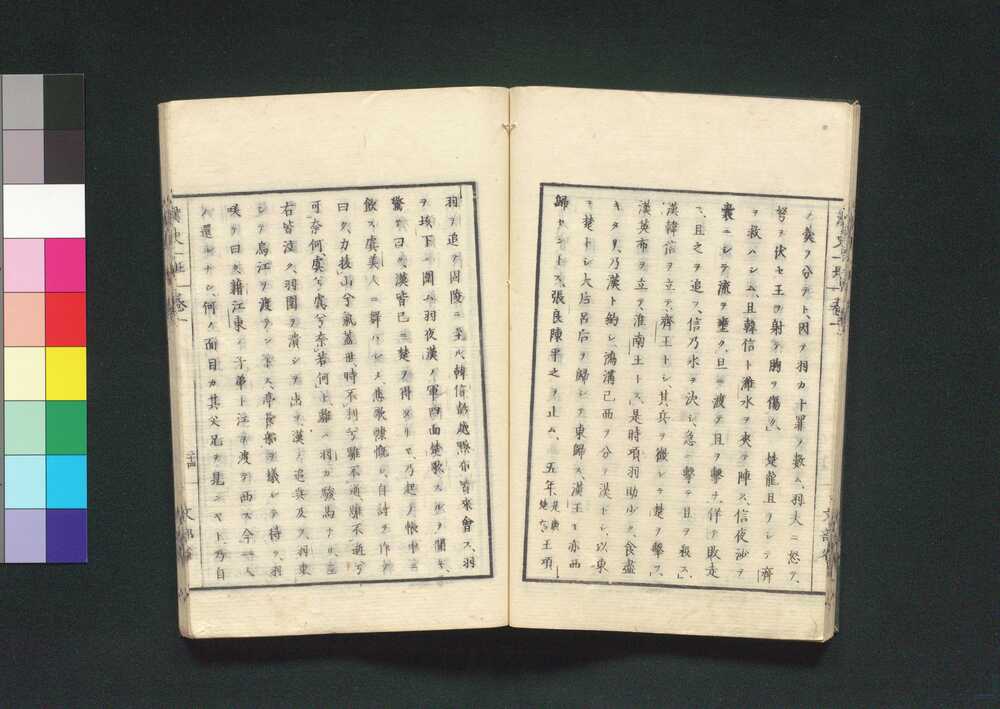 ノ義ヲ分テト、因テ羽カ十罪ヲ數ム、羽大ニ怒テ、
弩ヲ伏セ王ヲ射テ胸ヲ傷ク、楚龍且ヲシテ齊
ヲ救ハシム、且韓信ト濰水ヲ夾テ陣ス、信夜沙ヲ
囊ニシテ流ヲ壅ク、旦ニ渡テ且ヲ擊チ、佯テ敗走
ス、且之ヲ追フ、信乃水ヲ決シ、急ニ擊テ且ヲ殺ス、
漢韓信ヲ立テ、齊王トシ、其兵ヲ徴シテ楚ヲ擊ツ、
漢英布ヲ立テ、淮南王トス、是時項羽助少ク、食盡
キタリ、乃漢ト約シ、鴻溝已西ヲ分テ漢トシ、以東
ヲ楚トシ、大后呂后ヲ歸シテ東歸ス、漢王モ亦西
歸セントス、張良陳平之ヲ止ム、 五年 王項
羽ヲ追テ固陵ニ至ル、韓信彭越黥布皆來會ス、羽
ヲ垓下ニ圍ム、羽夜漢ノ軍四面楚歌スルヲ聞キ、
驚テ曰ク、漢皆已ニ楚ヲ得タリヤ、乃起テ帳中ニ
飲ス、虞美人ニ舞ハシメ、悲歌慷慨シ、自詩ヲ作テ
曰ク、力拔山兮氣蓋世時不利兮騅不逝騅不逝兮
可奈何、虞兮虞兮奈若何、ト騅ハ羽カ駿馬ナリ左
右皆泣ク、羽圍ヲ潰シテ出ツ、漢之ヲ追ヒ及フ、羽東
シテ烏江ヲ渡ラントス、亭長船ヲ艤シテ待ツ、羽
咲テ曰ク、籍江東ノ子弟ト江ヲ渡テ西ス今一人
ノ還ルナシ、何ノ面目カ其父兄ヲ見ンヤト、乃自